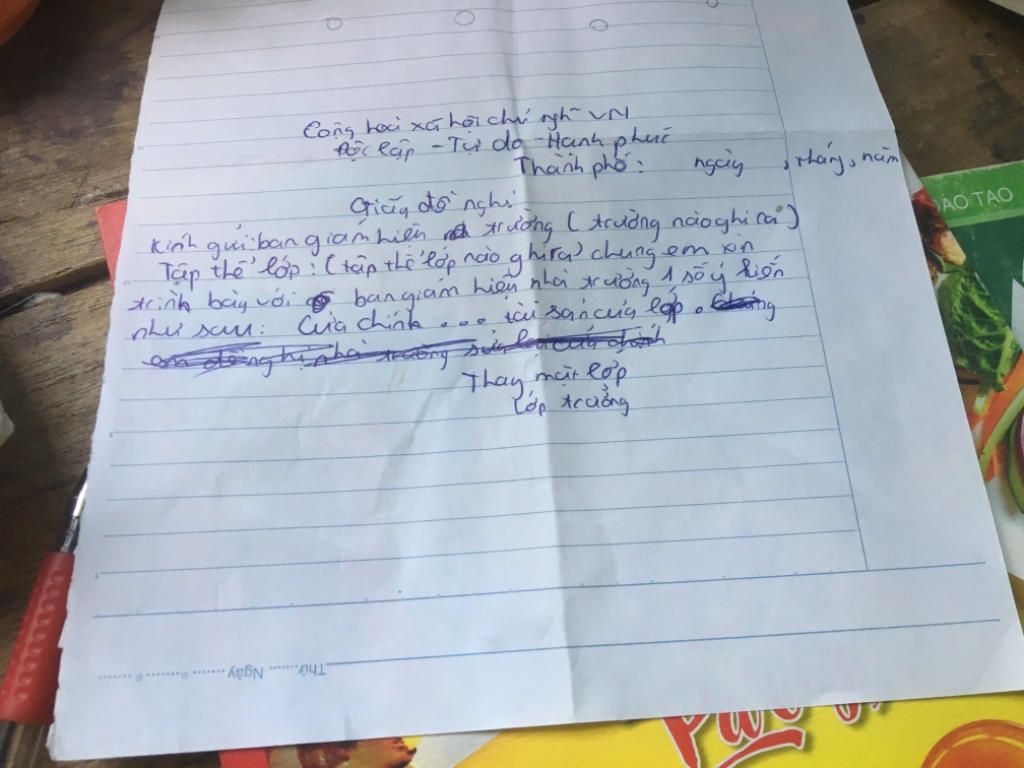 Cộng hoà xã hội chủ nghĩ VN
Độc lập - Tự do - Hạnh phúc
Thành phố: ngày , tháng, năm
Giấy đề nghị
Kính gửi: ban giám hiệu trường (trường nào ghi ra)
Tập thể lớp: (tập thể lớp nào ghi ra) chúng em xin
trình bày với ban giám hiệu nhà trường 1 số ý kiến
như sau: Cửa chính ... tài sản của lớp. Chúng
em đề nghị nhà trường sửa lại cửa chính
Thay mặt lớp
Lớp trưởng
Thứ ....... Ngày
ĐÀO TẠO